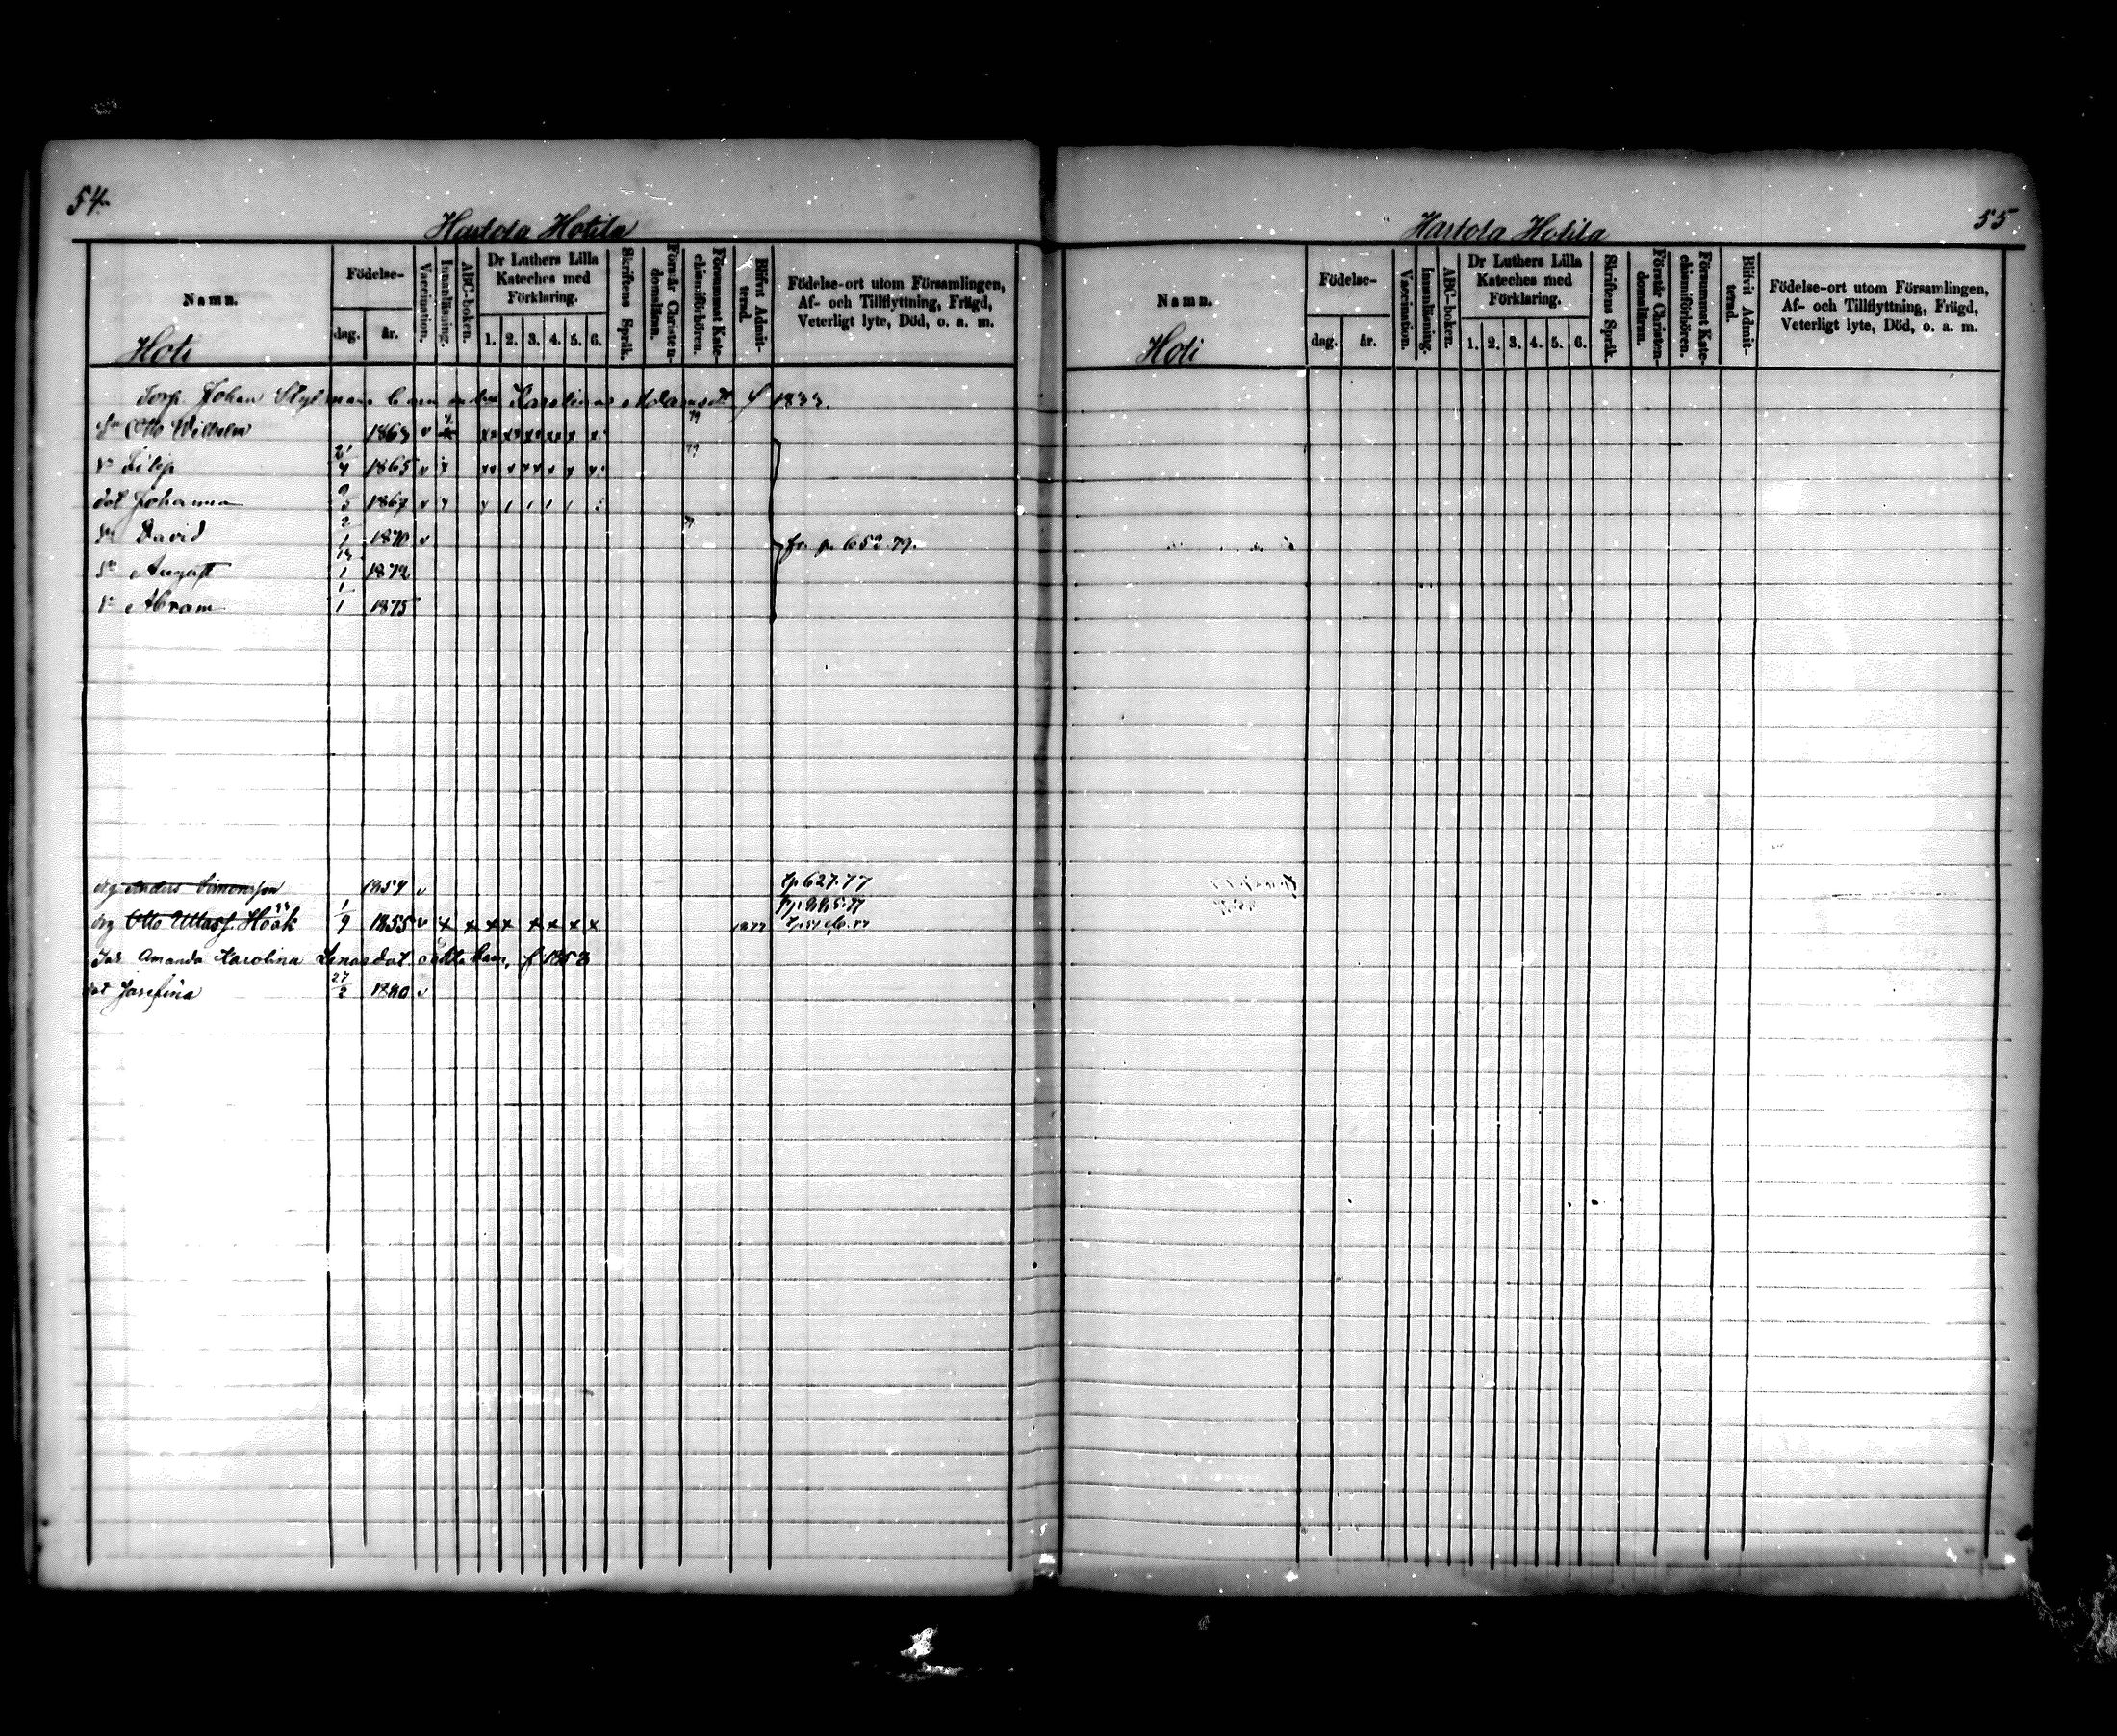 54.
Hartola Hotila
Namn.
Födelse-
dag.
år.
Vaccination.
Innanläsning.
ABC-boken.
Dr Luthers Lilla
Kateches med
Förklaring.
1. 2. 3. 4. 5. 6.
Skriftens Språk.
Förstår Christen-
domsläran.
Försummat Kate-
chismiförhören.
Blifvit Admit-
terad.
Födelse-ort utom Församlingen,
Af- och Tillflyttning, Frägd,
Veterligt lyte, Död, o. a. m.
Hoti
Torp. Johan barn Karolina Adamsdt f 1833.
Sn Otto Wilhelm 1863 v
Sn Filip 1865 v
dot Johanna 1867 v
Sn David 2/1 1870 v
p. 652. 77.
Sn August 1872
Sn Abram 1/1 1875
drg Anders Simonsson 1854 v 627. 77
drg Otto Höök 1/9 1855 v x x x x x x x x 1877
Amanda Karolina Lenasdot. oäkta barn, f 1853
dot Josefina 27/2 1880 v
55
Hartola Hotila
Namn.
Födelse-
dag.
år.
Vaccination.
Innanläsning.
ABC-boken.
Dr Luthers Lilla
Kateches med
Förklaring.
1. 2. 3. 4. 5. 6.
Skriftens Språk.
Förstår Christen-
domsläran.
Försummat Kate-
chismiförhören.
Blifvit Admit-
terad.
Födelse-ort utom Församlingen,
Af- och Tillflyttning, Frägd,
Veterligt lyte, Död, o. a. m.
Hoti